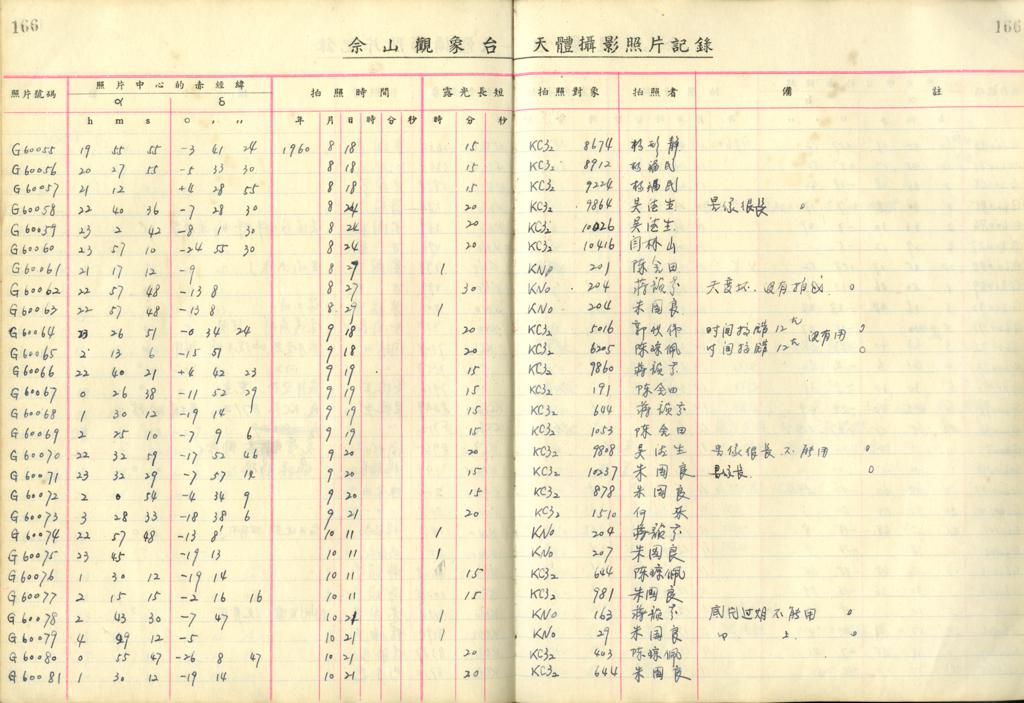 166 166
佘山觀象台 天體攝影照片記錄
照片號碼 照片中心的赤經緯 拍照時間 露光長短 拍照對象 拍照者 備 註
α δ
h m s ○ ′ ″ 年 月 日 時 分 秒 時 分 秒
G60055 19 55 55 -3 41 24 1960 8 18 15 KC32 8674 静
G60056 20 27 55 -5 33 30 8 18 15 KC32 8912
G60057 21 12 +4 28 55 8 18 15 KC32 9224
G60058 22 40 36 -7 28 30 8 24 20 KC32 9864 吴法生 星像很長
G60059 23 2 42 -8 1 30 8 24 20 KC32 10026 吴法生
G60060 23 57 10 -24 55 30 8 24 20 KC32 10416 闫林山
G60061 21 17 12 -9 8 27 1 KNo 201 陈
G60062 22 57 48 -13 8 8 27 30 KNo 204 蒋 天变坏 没有拍成
G60063 22 57 48 -13 8 8 29 1 KNo 204 朱国良
G60064 23 26 51 -0 34 24 9 18 20 KC32 5016 郭 时间拍錯 12 没有用
G60065 2 13 6 -15 51 9 18 20 KC32 6205 陈琼佩 时间拍錯 12
G60066 22 40 21 +4 42 23 9 19 15 KC32 9860 蒋
G60067 0 26 38 -11 52 29 9 19 15 KC32 191 陈
G60068 1 30 12 -19 14 9 19 15 KC32 644 蒋
G60069 2 25 10 -7 9 6 9 19 15 KC32 1053 陈
G60070 22 32 59 -17 52 46 9 20 20 KC32 9808 吴法生 星像很長 不能用
G60071 23 32 29 -7 57 14 9 20 15 KC32 10237 朱国良 星像長
G60072 2 0 54 -4 34 9 9 20 15 KC32 878 朱国良
G60073 3 28 33 -18 38 6 9 21 20 KC32 1510 何
G60074 22 57 48 -13 8 10 11 1 KNo 204 蒋
G60075 23 45 -19 13 10 11 1 KNo 207 朱国良
G60076 1 30 12 -19 14 10 11 15 KC32 644 陈琼佩
G60077 2 15 15 -2 16 16 10 11 15 KC32 981 朱国良
G60078 2 43 30 -7 47 10 21 1 KNo 163 蒋 底片过期不能用
G60079 4 29 12 -5 10 21 1 KNo 29 朱国良
G60080 0 55 47 -26 8 47 10 21 20 KC32 403 陈琼佩
G60081 1 30 12 -19 14 10 21 20 KC32 644 朱国良